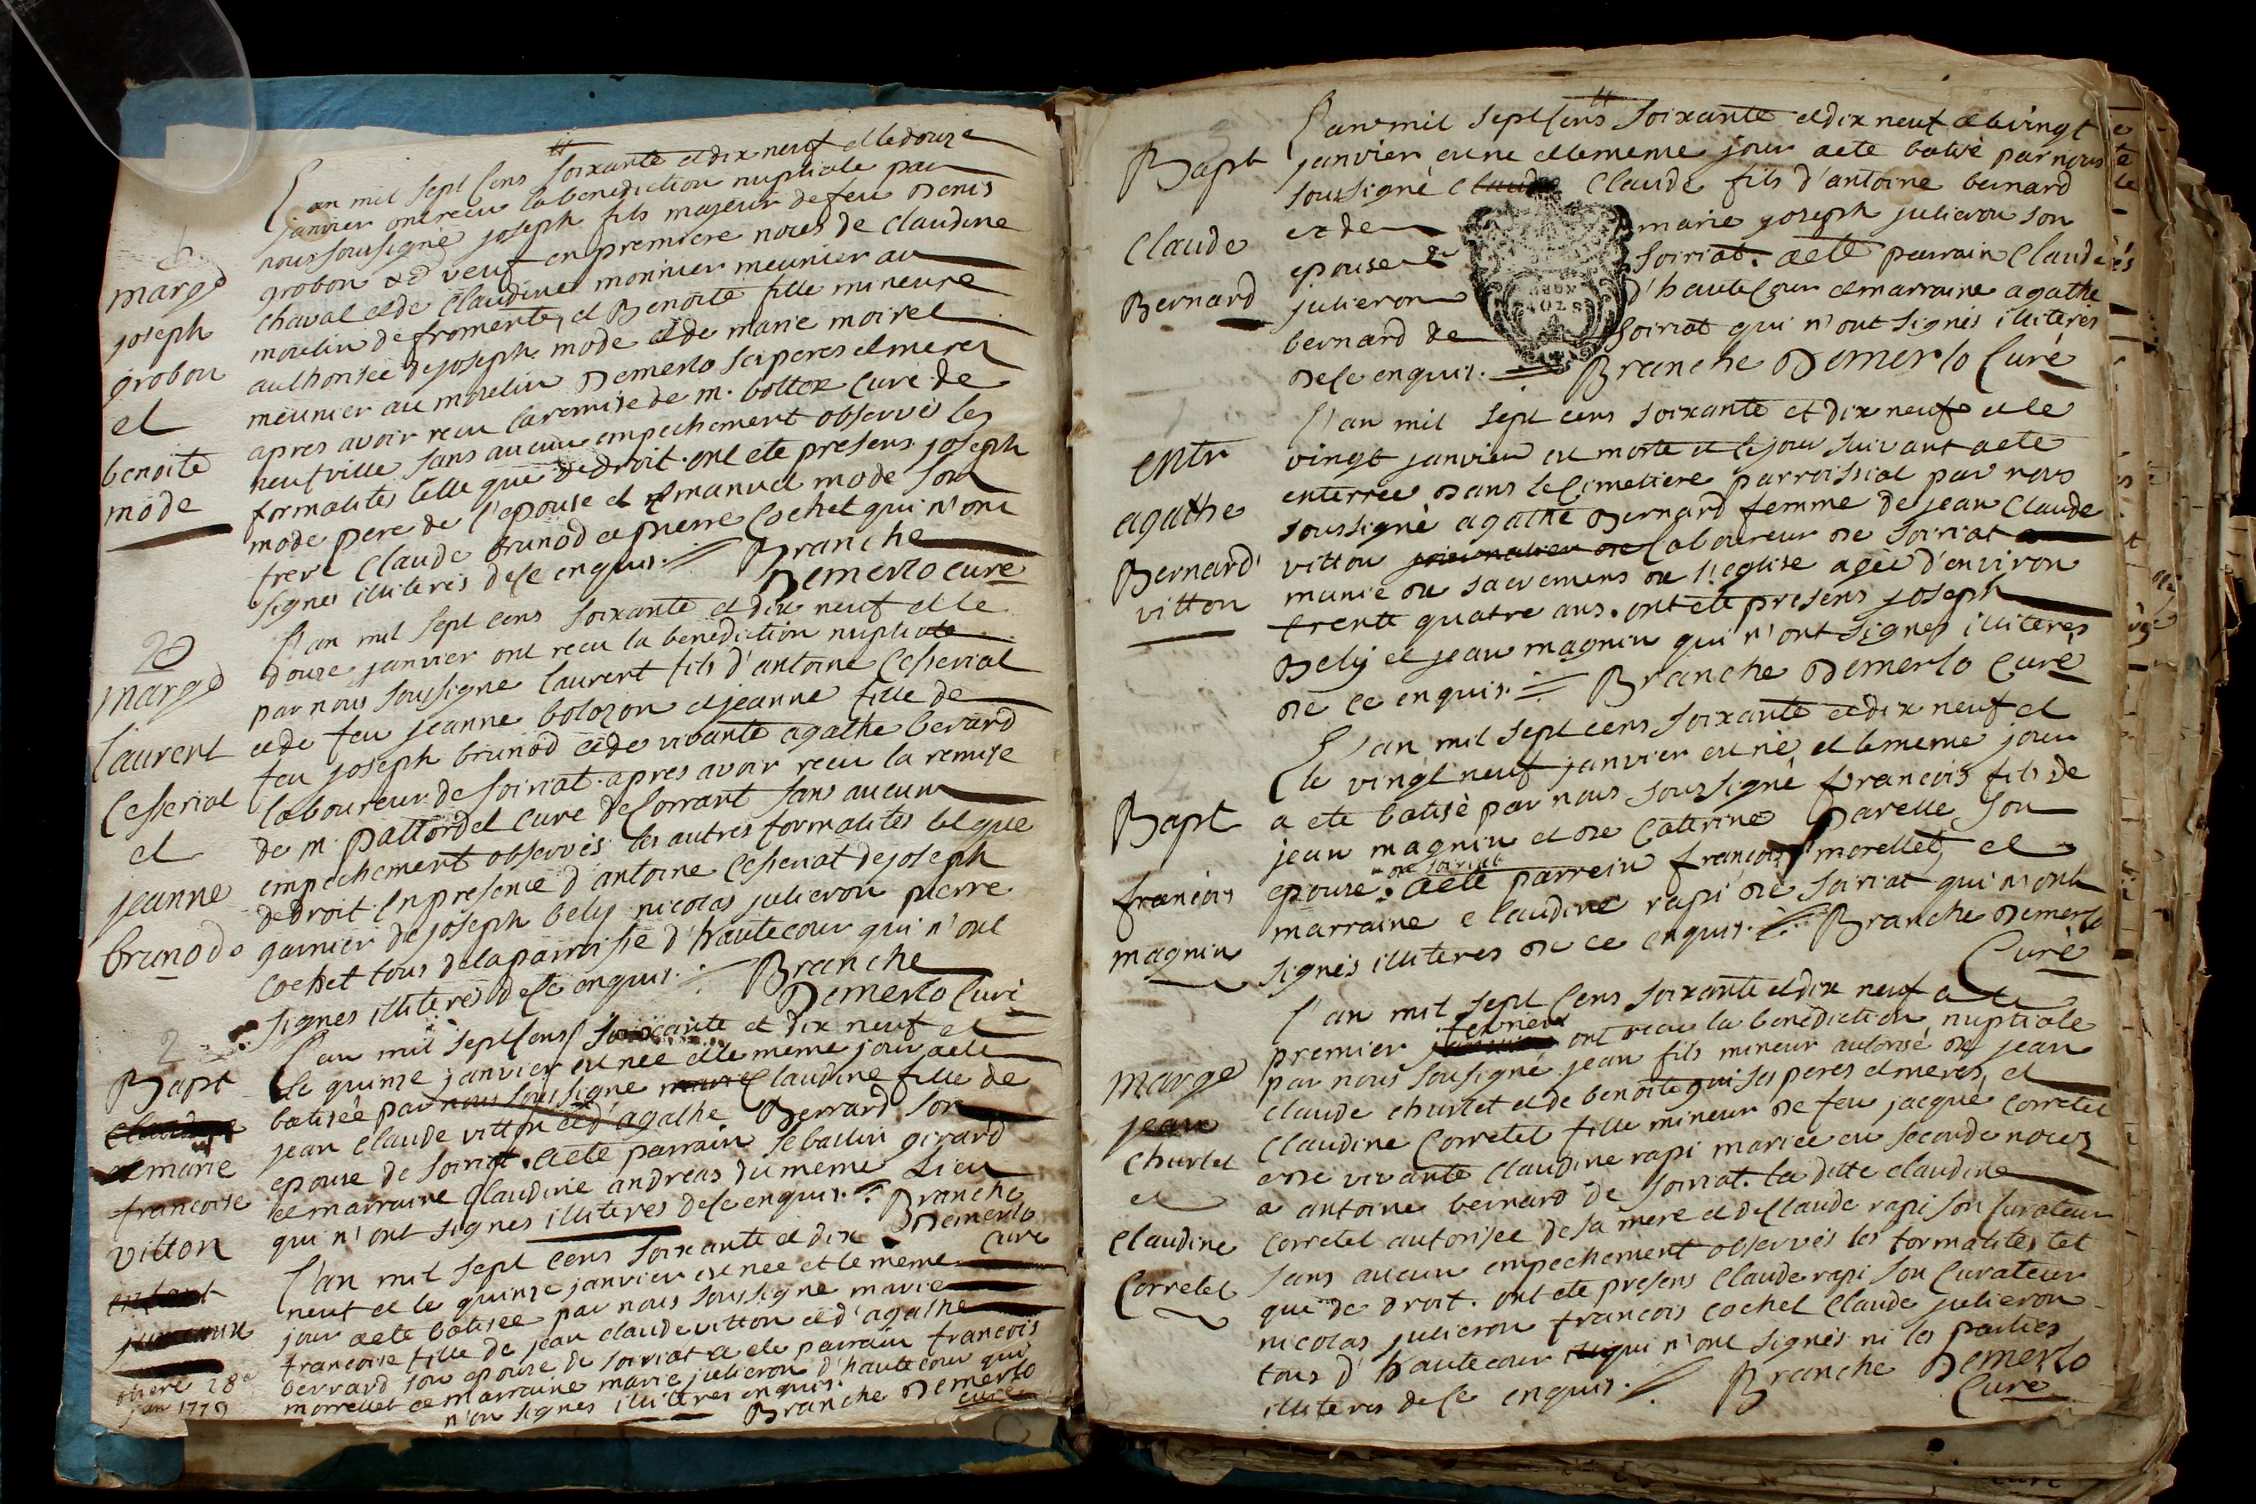 L'an mil sept cens soixante et dix neuf et le douze
janvier ont recu la benediction nuptiale par
nous soussigné joseph fils majeur de feu Denis
grobon et veuf en premiere noces de claudine
chaval et de claudine monnier meunier au
moulin de fromente, et Benoite fille mineure
authorisée de joseph mode et de marie moirel
meunier au moulin Demerlo ses peres et meres
apres avoir recu la remise de m. bottex Curé de
neufville sans aucun empechement observés les
formalités telle que de droit. ont eté presens joseph
mode pere de l'epouse et emanuel mode son
frere claude brunod et pierre Cochet qui n'ont
signés illiterés de ce enquis. Branche
Demerlo curé
marge
joseph
grobon
et
benoite
mode
L'an mil sept cens soixante et dix neuf et le
douze janvier ont recu la benediction nuptiale
par nous soussigné laurent fils d'antoine Cesseriat
et de feu jeanne bolozon et jeanne fille de
feu joseph brunod et de vivante agathe berard
laboureur de soiriat. apres avoir recu la remise
de m. Curé de Corrant sans aucun
empechement observés les autres formalités tel que
de droit. En presence d'antoine Cesseriat de joseph
garnier de joseph bely nicolas julieron pierre
Cochet tous de la parroisse d'hautecour qui n'ont
signes illiteré de ce enquis. Branche
Demerlo Curé
20
marge
laurent
Cesseriat
et
jeanne
brunod
L'an mil sept Cens soixante et dix neuf et
le quinze janvier est née et le meme jour a eté
batisée par nous soussigné marie Claudine fille de
jean Claude vitton et d'agathe Berrard son
epouse de soiriat. a eté parrain sebastin girard
et marraine Claudine andréas du meme Lieu
qui n'ont signés illiterés de ce enquis. Branche
Demerlo
curé
2
Bapt
Claudine
et marie
francoise
vitton
enfant
jumeaux
L'an mil sept cens soixante et dix
neuf et le quinze janvier est née et le meme
jour a eté batisée par nous soussigné marie
francoise fille de jean claude vitton et d'agathe
berrard son epouse de soiriat a ete parrain francois
morrellet et marraine marie julieron d'hautecour qui
n'on signés illiterés enquis. Branche Demerlo
curé
28e
jan 1779
L'an mil sept Cens soixante et dix neuf et le vingt
janvier est né et le meme jour a eté batisé par nous
soussigné claude Claude fils d'antoine bernard
et de marie joseph julieron son
epouse de soiriat. a eté parrain Claude
julieron d'hautecour et marraine agathe
bernard de soiriat qui n'ont signés illiterés
de ce enquis. Branche Demerlo Curé
Bapt
Claude
Bernard
L'an mil sept cens soixante et dix neuf et le
vingt janvier est morte et le jour suivant a eté
enterrée dans le Cimetiere parroissial par nous
soussigné agathe Bernard femme de jean Claude
vitton journalier de laboureur de soiriat
munie de sacremens de l'eglise agée d'environ
trente quatre ans. ont eté presens joseph
Bely et jean magnin qui n'ont signes illiterés
de ce enquis. Branche Demerlo Curé
entr
agathe
Bernard
vitton
L'an mil sept cens soixante et dix neuf et
le vingt neuf janvier est né et le meme jour
a eté batisé par nous soussigné francois fils de
jean magnin et de Caterine parelle, son
epouse de soiriat. a eté parrein francois morellet, et
marraine claudine rapi de soiriat qui n'ont
signés illiteres de ce enquis. Branche Demerlo
Curé
Bapt
francois
magnin
L'an mil sept Cens soixante et dix neuf et le
premier janvier fevrier ont recu la benediction nuptiale
par nous soussigné jean fils mineur autorisé de jean
claude churlet et de benoite gui ses peres et meres, et
Claudine Corretel fille mineur de feu jacque Corretel
et de vivante claudine rapi mariée en seconde noces
a antoine bernard de soiriat. la ditte claudine
Corretel autorisée de sa mere et de Claude rapi son Curateur
sans aucun empechement observés les formalités tel
que de droit. ont ete presens Claude rapi son Curateur
nicolas julieron francois cochet Claude julieron
tous d'hautecour qui n'ont signés ni les parties
illiteres de ce enquis. Branche Demerlo
Curé
marge
jean
churlet
et
Claudine
Corretel